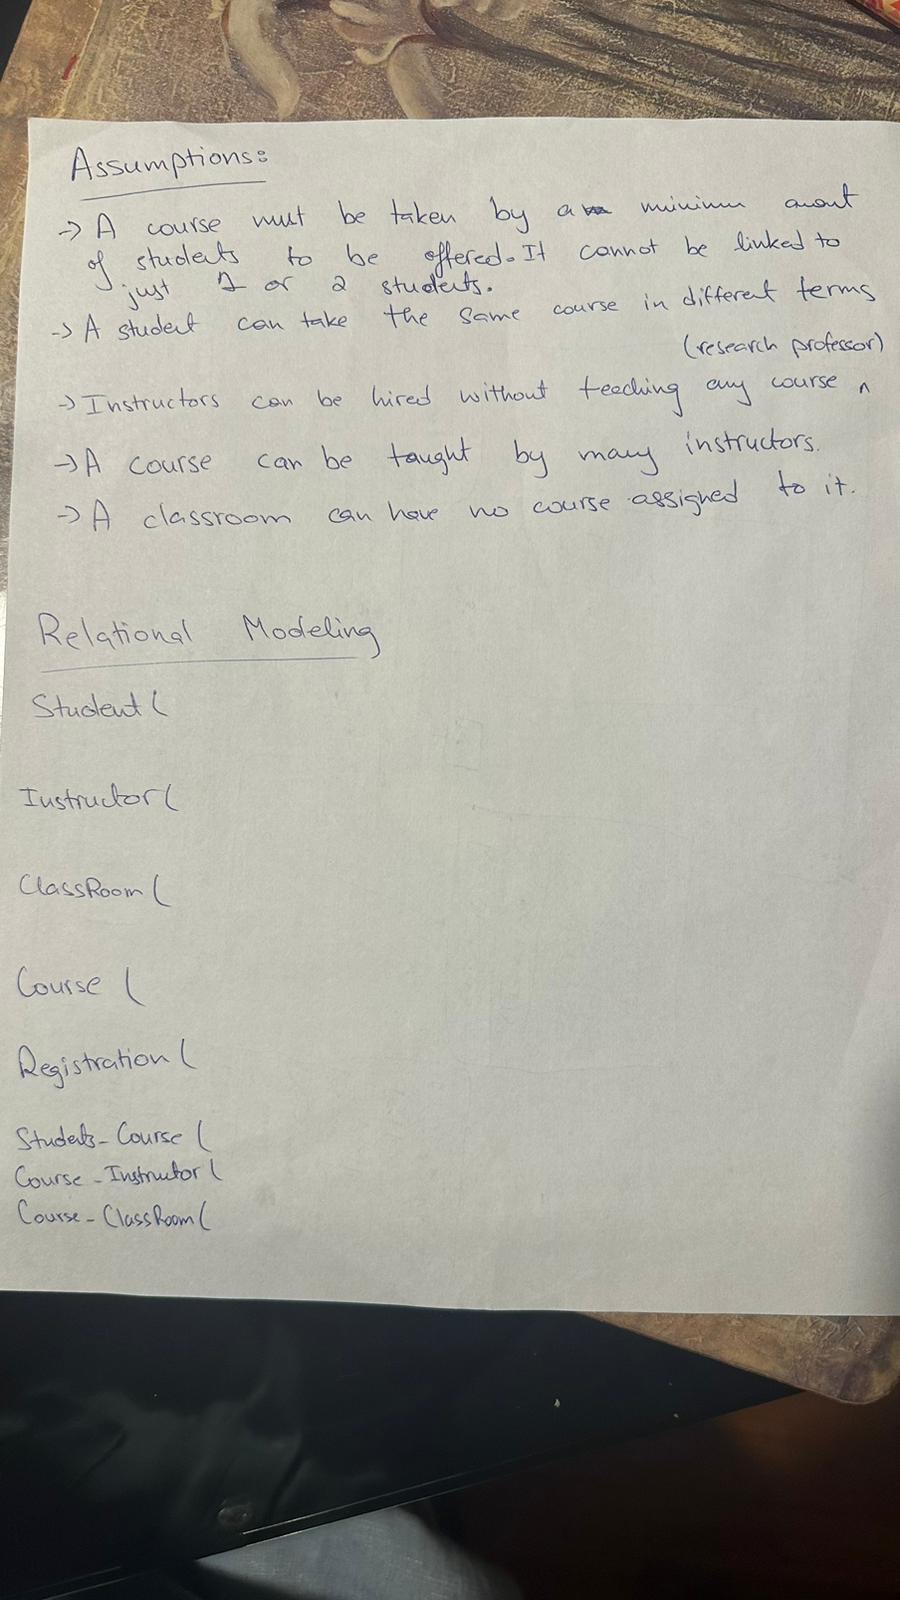 Assumptions:
-> A course must be taken by a minimum amount
of students to be offered. It cannot be linked to
just 1 or 2 students.
-> A student can take the same course in different terms
(research professor)
-> Instructors can be hired without teaching any course ^
-> A course can be taught by many instructors.
-> A classroom can have no course assigned to it.
Relational Modeling
Student (
Instructor (
ClassRoom (
Course (
Registration (
Students-Course (
Course-Instructor (
Course-ClassRoom (